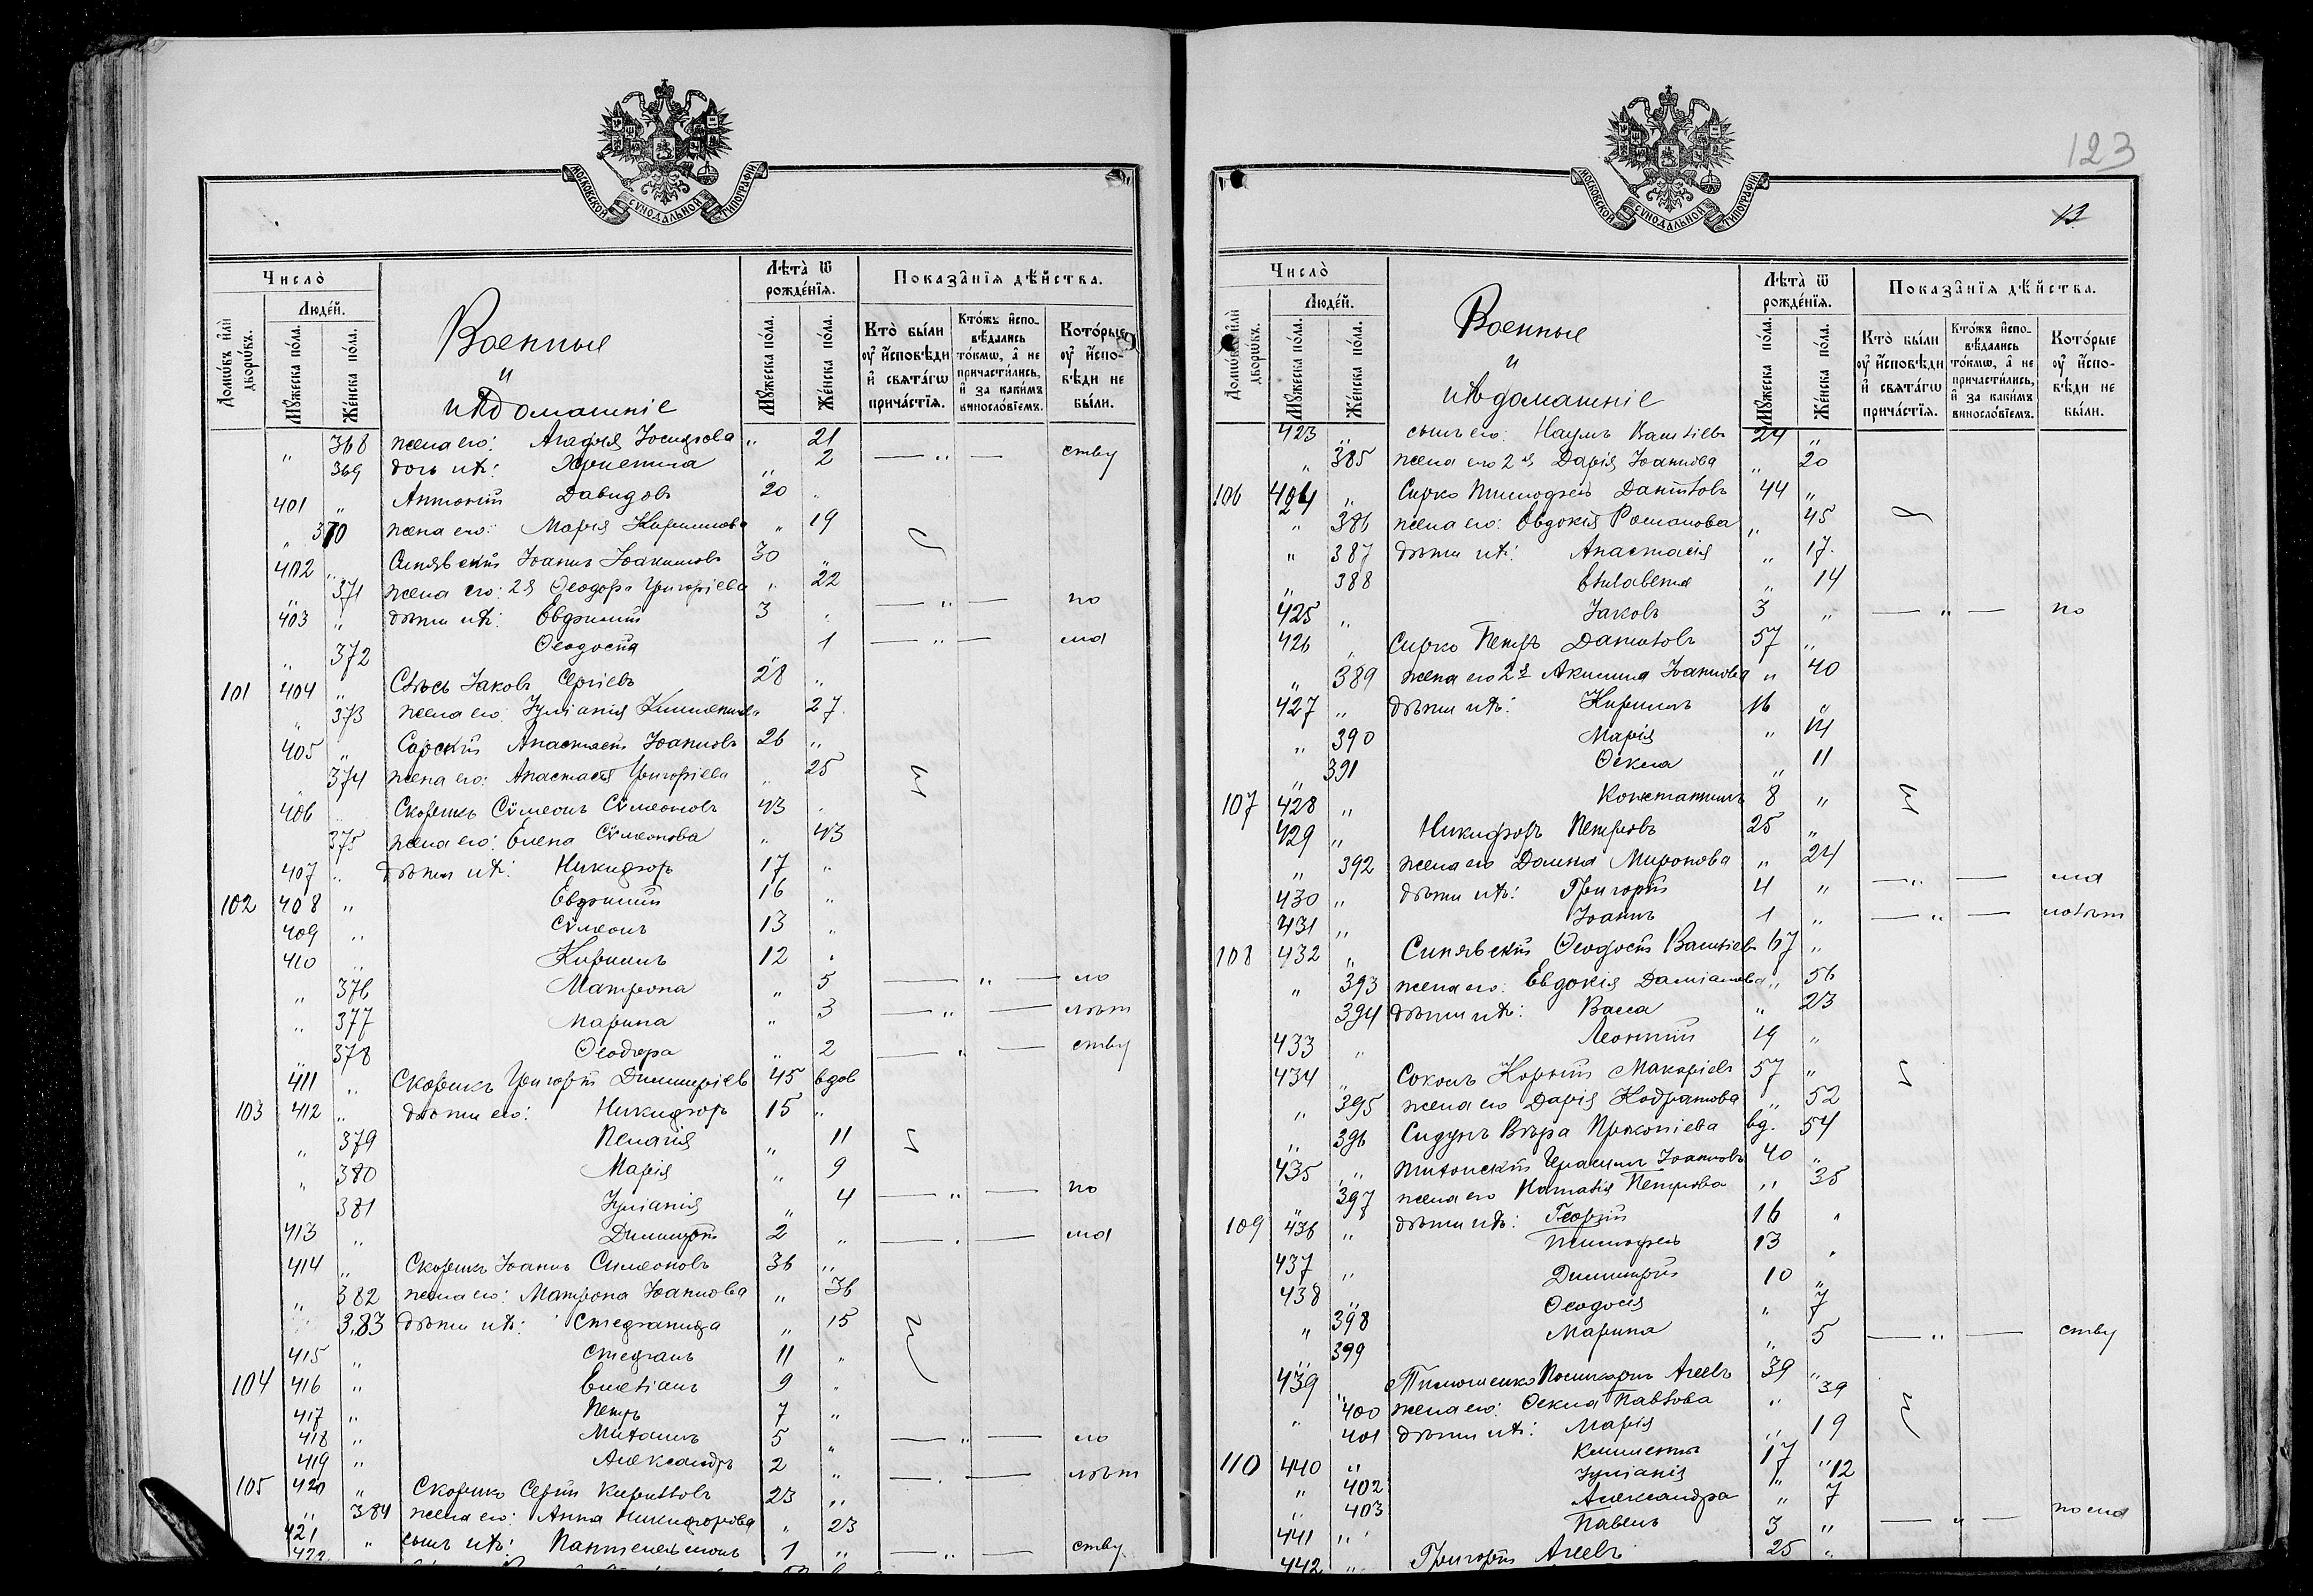 МОСКОВСКОЙ СѴНОДАЛЬНОЙ ТИПОГРАФІИ
Число̀
Людей.
Домѡ́въ и҆лѝ дворѡ́въ.
Мꙋ́жеска по́ла.
Же́нска по́ла.
Военные
и
ихъ домашніе
Лѣта̀ ѿ рожде́нїѧ.
Мꙋ́жеска по́ла.
Же́нска по́ла.
Показа̑нїѧ дѣ́йства.
Кто̀ бы́ли ᲂу҆ и҆́сповѣди и҆ свѧта́гѡ прича́стїѧ.
Кто́жъ и҆спо-вѣ́дались то́кмѡ, а҆ не причасти́лись, и҆ за каки́мъ виносло́вїемъ.
Кото́рые ᲂу҆ и҆́спо-вѣди не бы́ли.
„ 368 жена его: Агафія Іосифова „ 21
369 дочь ихъ: Христина „ 2 — „ — ству
401 „ Антоній Давидовъ 20 „
„ 370 жена его: Марія Кириллова „ 19
402 „ Синявскій Іоаннъ Іоакимовъ 30 „
„ 371 жена его: 2я Ѳеодора Григоріева „ 22
403 „ дѣти ихъ: Евфимій 3 „ — „ — по
„ 372 Ѳеодосія „ 1 — „ — мл
101 404 „ Сѣрсь Іаковъ Сергіевъ 28 „
„ 373 жена его: Іуліанія Климентіева „ 27
405 „ Сорскій Анастасій Іоанновъ 26 „
374 жена его: Анастасія Григоріева „ 25
406 Скорикъ Сѵмеонъ Сѵмеоновъ 43 „
375 жена его: Елена Сѵмеонова „ 43
407 „ дѣти ихъ: Никифоръ 17 „
102 408 „ Евфимій 16 „
409 „ Сѵмеонъ 13 „
410 „ Кириллъ 12 „
„ 376 Матрона „ 5 — „ — ло
„ 377 Марина „ 3 — „ — лѣт
„ 378 Ѳеодора „ 2 — „ — ству
411 „ Скорикъ Григорій Димитріевъ 45 вдов
103 412 „ дѣти его: Никифоръ 15 „
„ 379 Пелагія „ 11
„ 380 Марія „ 9
381 Іуліанія „ 4 — „ — по
413 „ Димитрій 2 „ — „ — мл
414 „ Скорикъ Іоаннъ Симеоновъ 36 „
„ 382 жена его: Матрона Іоаннова „ 36
383 дѣти ихъ: Стефанида „ 15
415 „ Стефанъ 11 „
104 416 „ Емеліанъ 9 „
417 „ Петръ 7 „
418 „ Михаилъ 5 „ — „ — ло
419 „ Александръ 2 „ — „ — лѣт
105 420 „ Скорико Сергій Кирилловъ 23 „
„ 384 жена его: Анна Никифорова „ 23
421 „ сынъ ихъ: Пантелеимонъ 1 „ — „ — ству
422
123
13
МОСКОВСКОЙ СѴНОДАЛЬНОЙ ТИПОГРАФІИ
Число̀
Людей.
Домѡ́въ и҆лѝ дворѡ́въ.
Мꙋ́жеска по́ла.
Же́нска по́ла.
Военные
и
ихъ домашніе
Лѣта̀ ѿ рожде́нїѧ.
Мꙋ́жеска по́ла.
Же́нска по́ла.
Показа̑нїѧ дѣ́йства.
Кто̀ бы́ли ᲂу҆ и҆́сповѣди и҆ свѧта́гѡ прича́стїѧ.
Кто́жъ и҆спо-вѣ́дались то́кмѡ, а҆ не причасти́лись, и҆ за каки́мъ виносло́вїемъ.
Кото́рые ᲂу҆ и҆́спо-вѣди не бы́ли.
423 „ сынъ его: Наумъ Василіевъ 24 „
„ 385 жена его 2я Дарія Іоаннова „ 20
106 424 „ Сирко Тимофей Даниловъ 44 „
„ 386 жена его: Евдокія Романова „ 45
„ 387 дѣти ихъ: Анастасія „ 17
„ 388 Елисавета „ 14
425 „ Іаковъ 3 „ — „ — по
426 „ Сирко Петръ Даниловъ 57 „
„ 389 жена его 2я Акилина Іоаннова „ 40
427 „ дѣти ихъ: Кириллъ 16 „
„ 390 Марія „ 14
„ 391 Ѳекла „ 11
107 428 „ Константинъ 8 „
429 „ Никифоръ Петровъ 25 „
„ 392 жена его Домна Миронова „ 24
430 „ дѣти ихъ: Григорій 4 „ — „ — мл
431 „ Іоаннъ 1 „ — „ — лолѣт
108 432 „ Синявскій Ѳеодосій Василіевъ 67 „
„ 393 жена его: Евдокія Даміанова „ 56
394 дѣти ихъ: Васса „ 23
433 „ Леонтій 19 „
434 „ Соколъ Корній Макаріевъ 57 „
„ 395 жена его Дарія Кодратова „ 52
„ 396 Сидунъ Вѣра Прокопіева вд. 54
435 „ Герасимъ Іоанновъ 40 „
397 жена его Наталія Петрова „ 35
109 436 „ дѣти ихъ: Георгій 16 „
437 „ Тимофей 13 „
438 „ Димитрій 10 „
„ 398 Ѳеодосія „ 7
„ 399 Марина „ 5 — „ — ству
439 „ Тимошенко Поликарпъ Агеевъ 39 „
„ 400 жена его: Ѳекла Павлова „ 39
401 дѣти ихъ: Марія „ 19
110 440 „ Климентъ 17 „
„ 402 Іуліанія „ 12
„ 403 Александра „ 7
441 „ Павелъ 3 „ — „ — по мл
442 „ Григорій Агеевъ 25 „